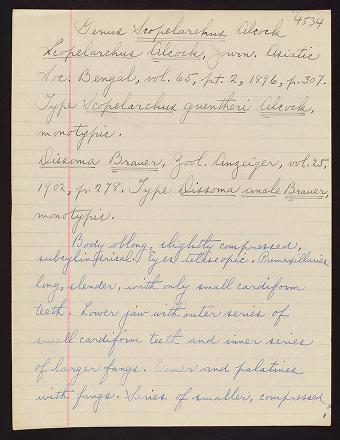 4534
Genus Scopelarchus Alcock
Scopelarchus Alcock, Journ. Asiatic
Soc. Bengal, vol. 65, pt. 2, 1896, p. 307.
Type Scopelarchus guentheri Alcock,
monotypic.
Dissoma Brauer, Zool. Anzeiger, vol. 25,
1902, p. 278. Type Dissoma anale Brauer,
monotypic.
Body oblong, slightly compressed,
subcylindrical. Eyes telescopic. Premaxillaries
long, slender, with only small cardiform
teeth. Lower jaw with outer series of
small cardiform teeth and inner series
of larger fangs. Vomer and palatines
with fangs. Series of smaller, compressed,